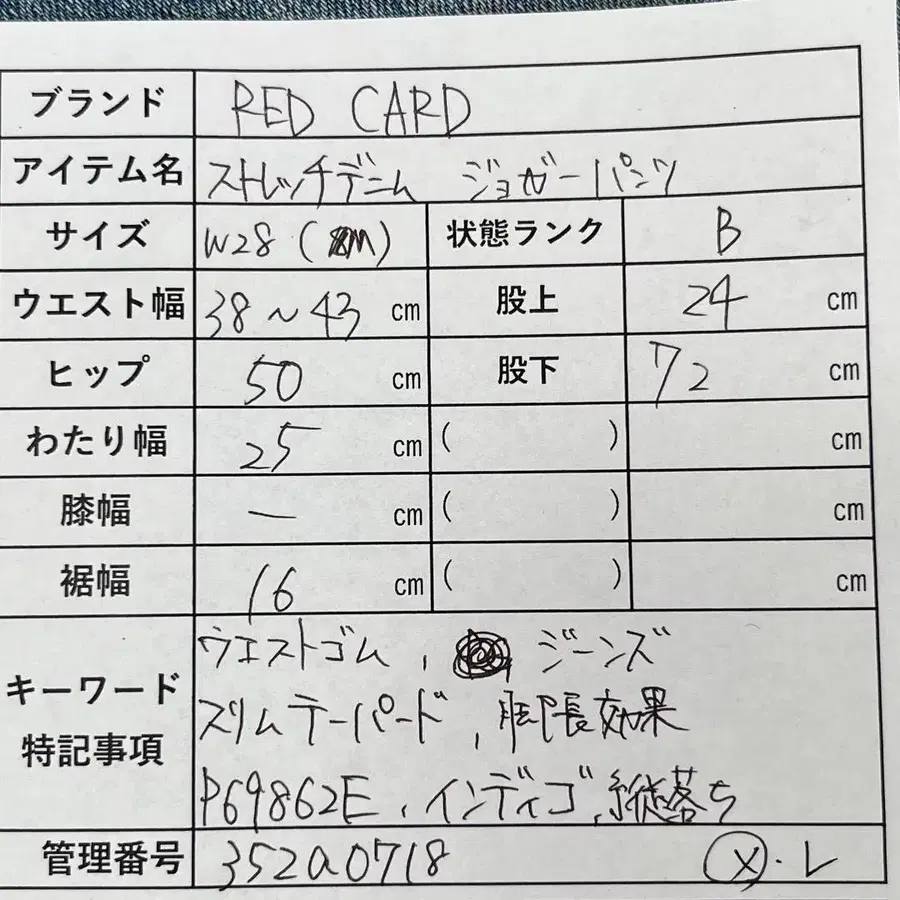 ブランド RED CARD
アイテム名 ストレッチデニム ジョガーパンツ
サイズ W28 (M) 状態ランク B
ウエスト幅 38~43 cm 股上 24 cm
ヒップ 50 cm 股下 72 cm
わたり幅 25 cm ( ) cm
膝幅 ー cm ( ) cm
裾幅 16 cm ( ) cm
ウエストゴム, ジーンズ
キーワード スリムテーパード, 脚長効果
特記事項 P69862E, インディゴ, 縦落ち
管理番号 352a0718 メ・レ